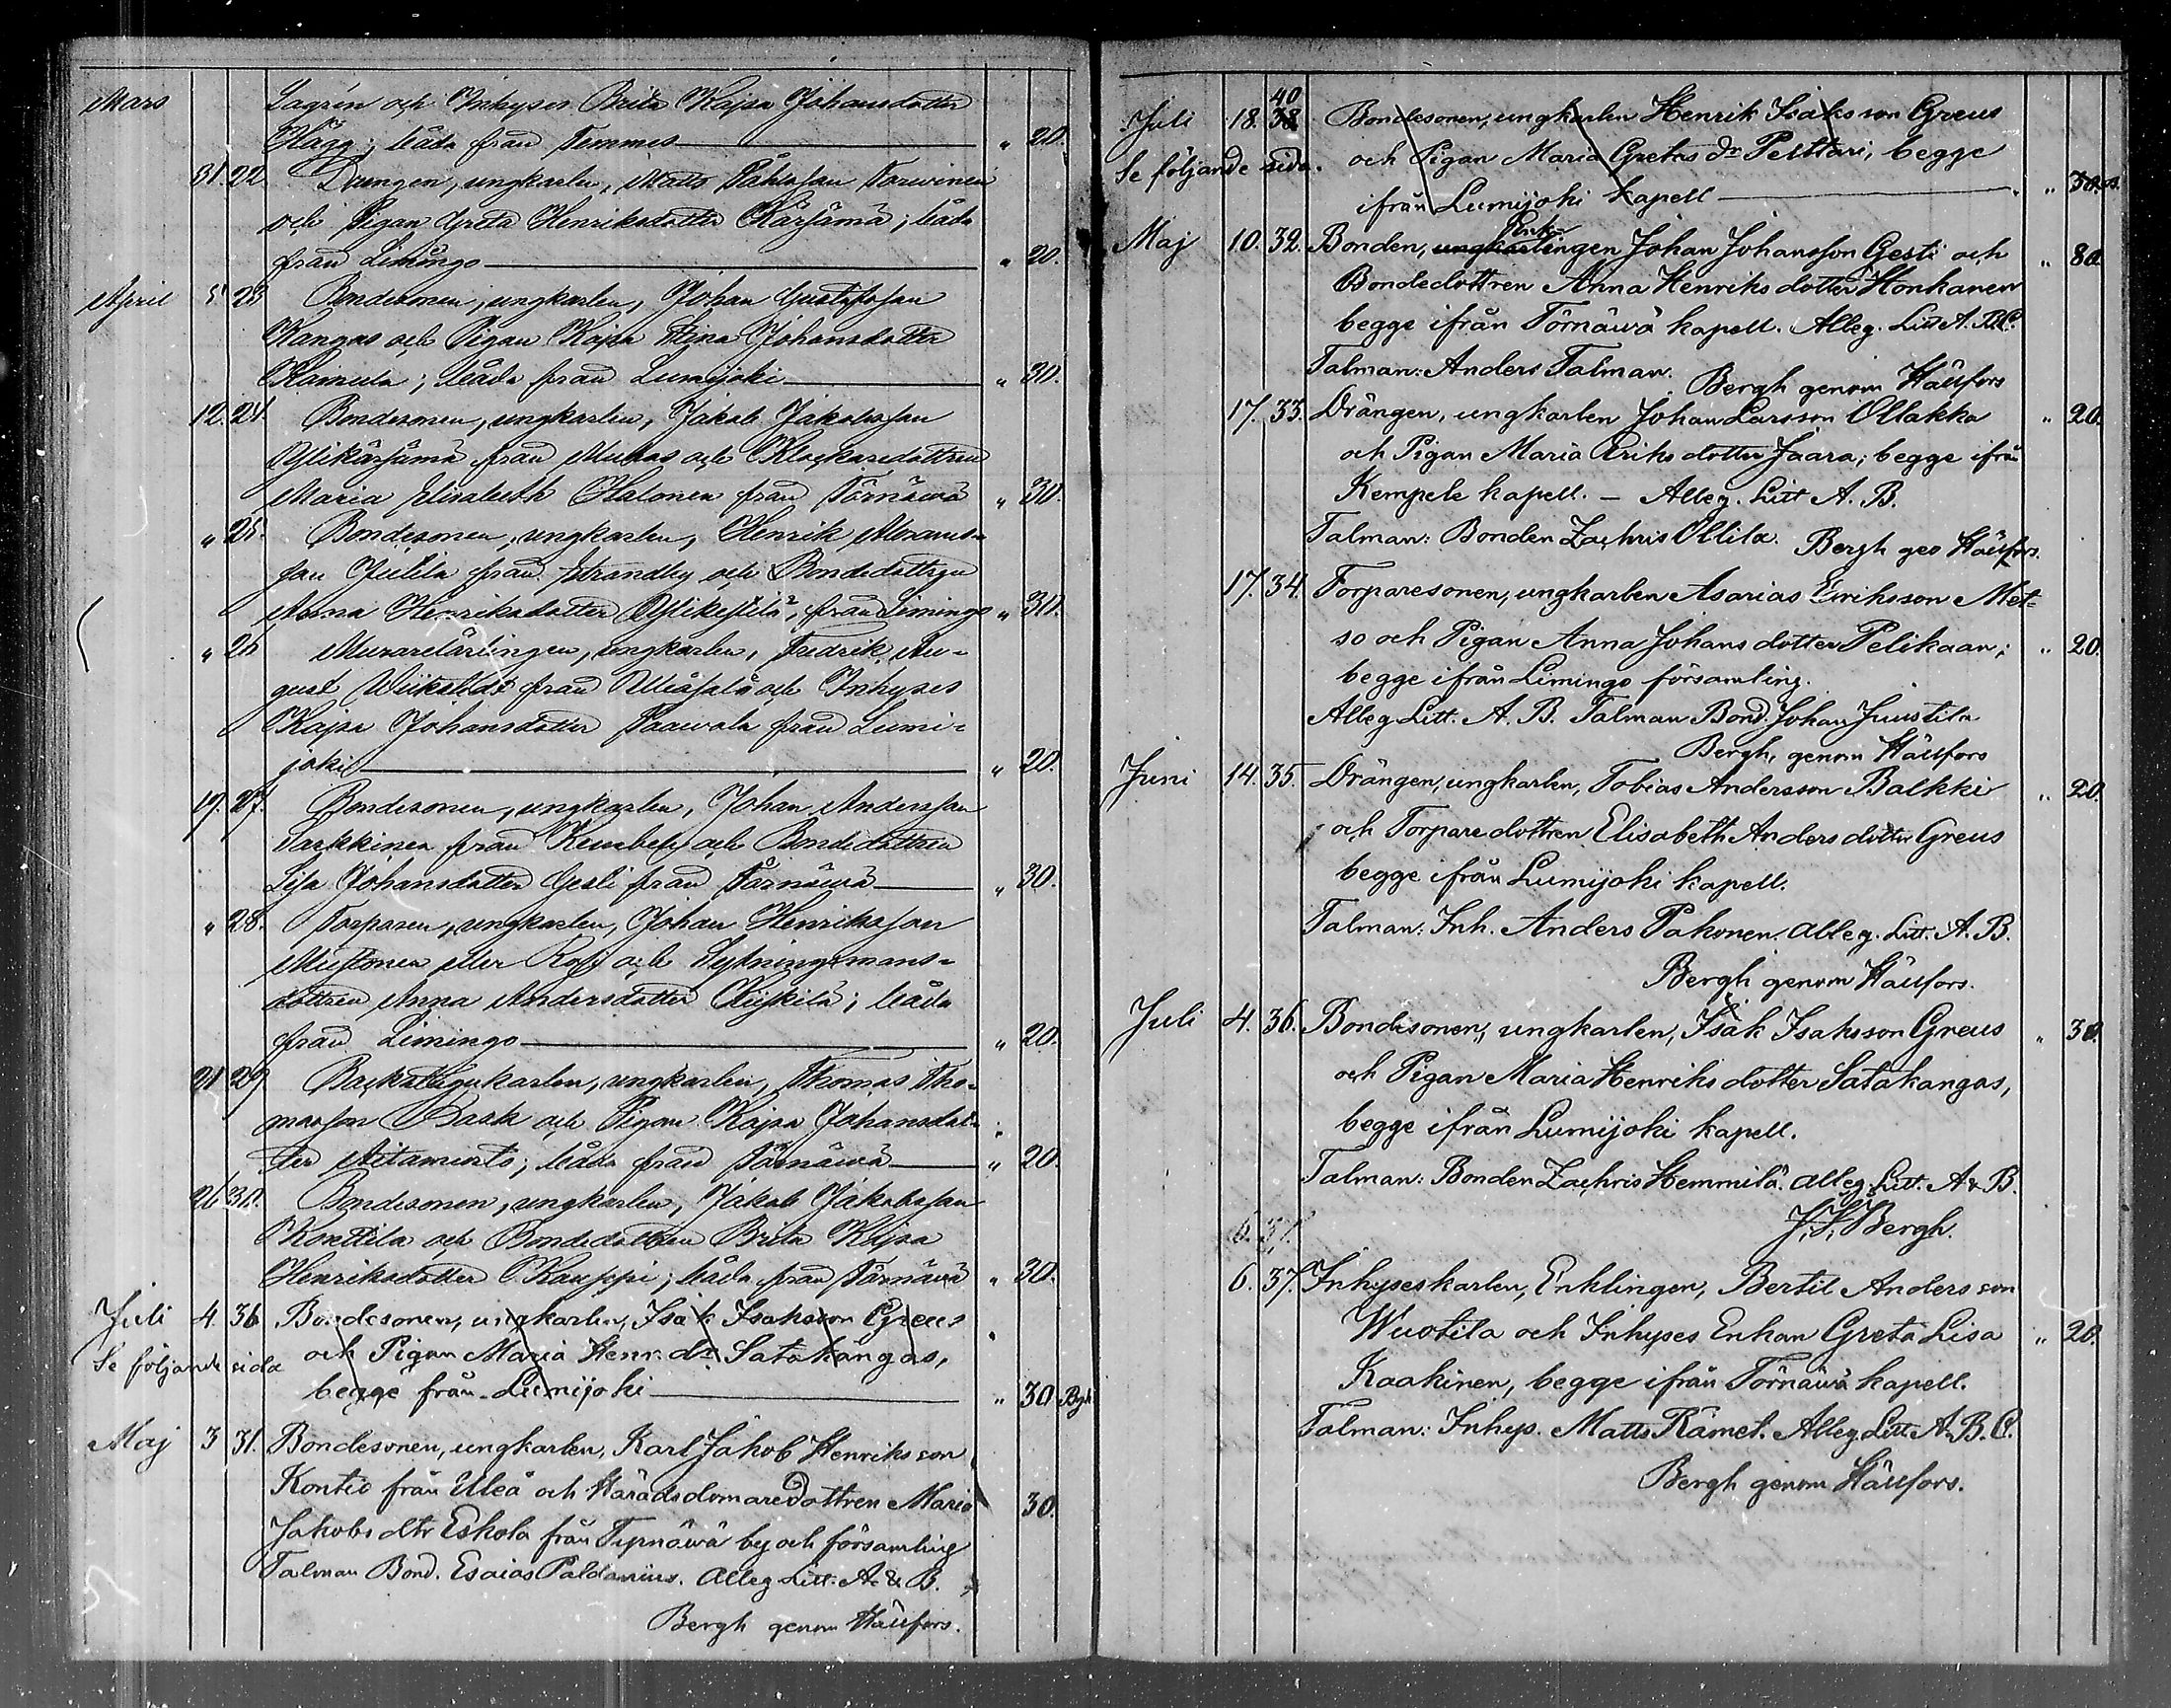 Mars Lagrén och Inhyses Brita Kajsa Johansdotter
Hägg; båda från Temmes " 20.
31. 22 Drengen, ungkarlen, Mats Påhlsson Tarwinen
och Pigan Greta Henriksdotter Kärsämä; båda
från Limingo " 20.
April 5 23 Bondesonen, ungkarlen, Johan Gustafsson
Kangas och Pigan Kajsa Stina Johansdotter
Kaimula; båda från Lumijoki " 30.
12. 24. Bondesonen, ungkarlen, Jakob Jakobsson
Ylikärsämä från Muhos och Klockaredottren
Maria Elisabeth Halonen från Törnäwä " 30.
" 25. Bondesonen, ungkarlen, Henrik Abrams-
son Juilila från Strandby och Bondedottren
Anna Henriksdotter från Limingo " 30.
" 26 Murarelärlingen, ungkarlen, Fredrik Au-
gust Wikstedt från Uleåsalo och Inhyses
Kajsa Johansdotter Paawola från Lumi-
joki " 20.
19. 27. Bondesonen, ungkarlen, Johan Andersson
Sarkkinen från Kembele och Bondedottren
Lisa Johansdotter Gesti från Törnäwä " 30.
" 28. Torparen, ungkarlen, Johan Henriksson
Mustonen eller och Sexmans-
dottren Anna Andersdotter; båda
från Limingo " 20.
21 29 Backstugukarlen, ungkarlen, Thomas Tho-
masson Bask och Pigan Kajsa Johansdot-
ter Aitamurto; båda från Törnäwä " 20.
26 30. Bondesonen, ungkarlen, Jakob Jakobsson
Knuttila och Bondedottren Brita Kajsa
Henriksdotter Kauppi; båda från Törnäwä " 30.
Juli 4. 36 Bondesonen, ungkarlen, Isak Isaksson Greus
Se följande sida och Pigan Maria Henr. dr Satakangas,
begge från Lumijoki " 30 Bgh
Maj 3 31. Bondesonen, ungkarlen, Karl Jakob Henriksson
Kontio från Uleå och Häradsdomaredottren Maria 30.
Jakobs dtr Eskola från Tyrnäwä by och församling
Talman Bond. Esaias Paldanius. Alleg Litt. A. & B.
Bergh genom Hällfors.
Juli 18. 40 38 Bondesonen, ungkarlen Henrik Isaksson Greus
Se följande sida. och Pigan Maria Gretas dr Pelttari, begge
ifrån Lumijoki kapell " 30.
Maj 10. 32. Bonden, ungkarlen Enklingen Johan Johansson Gesti och " 80.
Bondedottren Anna Henriks dotter Honkanen
begge ifrån Törnäwä kapell. Alleg. Litt A. B.C.
Talman: Anders Talman. Bergh genom Hällfors
17. 33. Drängen, ungkarlen Johan Larsson Ollakka " 20.
och Pigan Maria Eriks dotter Jaara; begge ifrån
Kempele kapell. – Alleg. Litt A. B.
Talman: Bonden Zachris Ollila. Bergh geo Hällfors.
17. 34. Torparesonen, ungkarlen Asarias Eriksson Met-
so och Pigan Anna Johans dotter Pelikaan; " 20.
begge ifrån Limingo församling.
Alleg Litt. A. B. Talman Bond. Johan Juustila
Bergh, genom Hällfors
Juni 14. 35. Drängen, ungkarlen, Tobias Andersson Balkki " 20.
och Torparedottren Elisabeth Anders dotter Greus
begge ifrån Lumijoki kapell.
Talman: Inh. Anders Pakonen. Alleg. Litt. A. B.
Bergh genom Hällfors.
Juli 4. 36. Bondesonen, ungkarlen, Isak Isaksson Greus " 30.
och Pigan Maria Henriks dotter Satakangas,
begge ifrån Lumijoki kapell.
Talman: Bonden Zachris Hemmilä. Alleg. Litt. A & B.
6. 37. J. F. Bergh.
6. 37. Inhyseskarlen, Enklingen, Bertil Andersson
Wuotila och Inhyses Enkan Greta Lisa " 20.
Kaakinen, begge ifrån Törnäwä kapell.
Talman: Inhys. Matts Rämet. Alleg. Litt. A. B. C.
Bergh genom Hällfors.